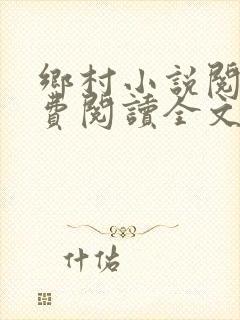 鄉村小説閱
費閱讀全文
什估